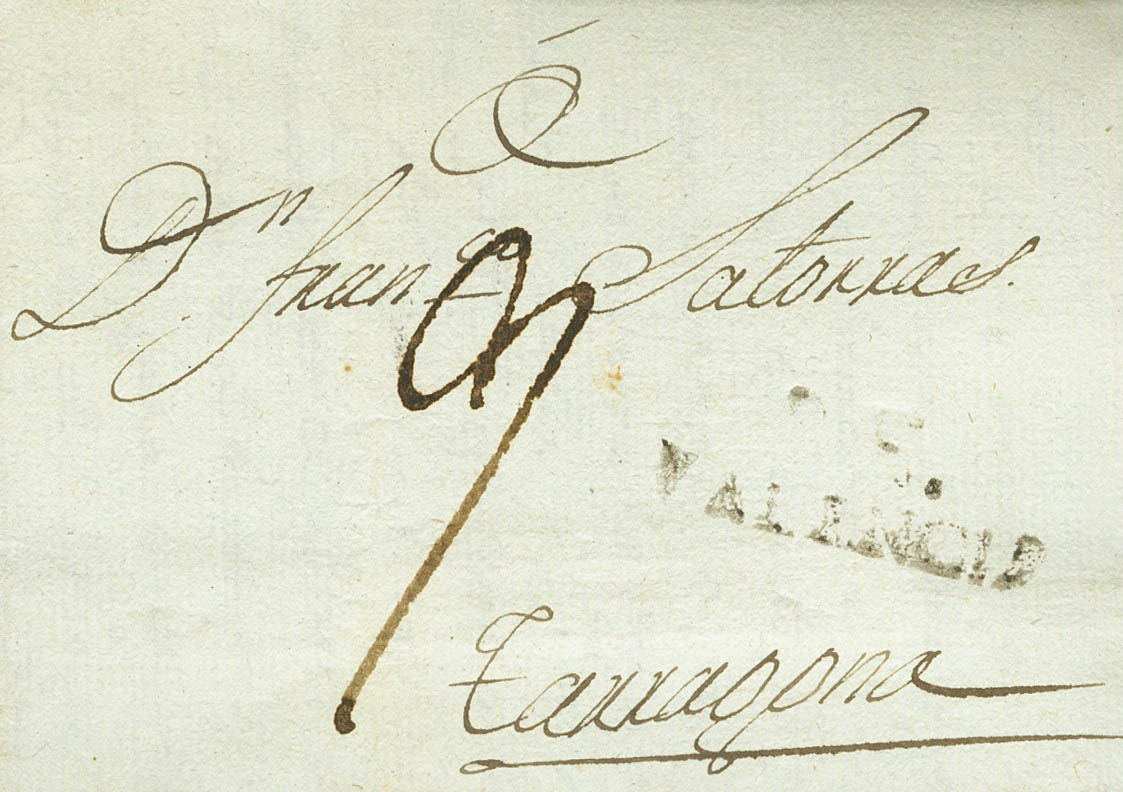 A
Dn. Franco. Satorras.
VALENCIA
Tarragona